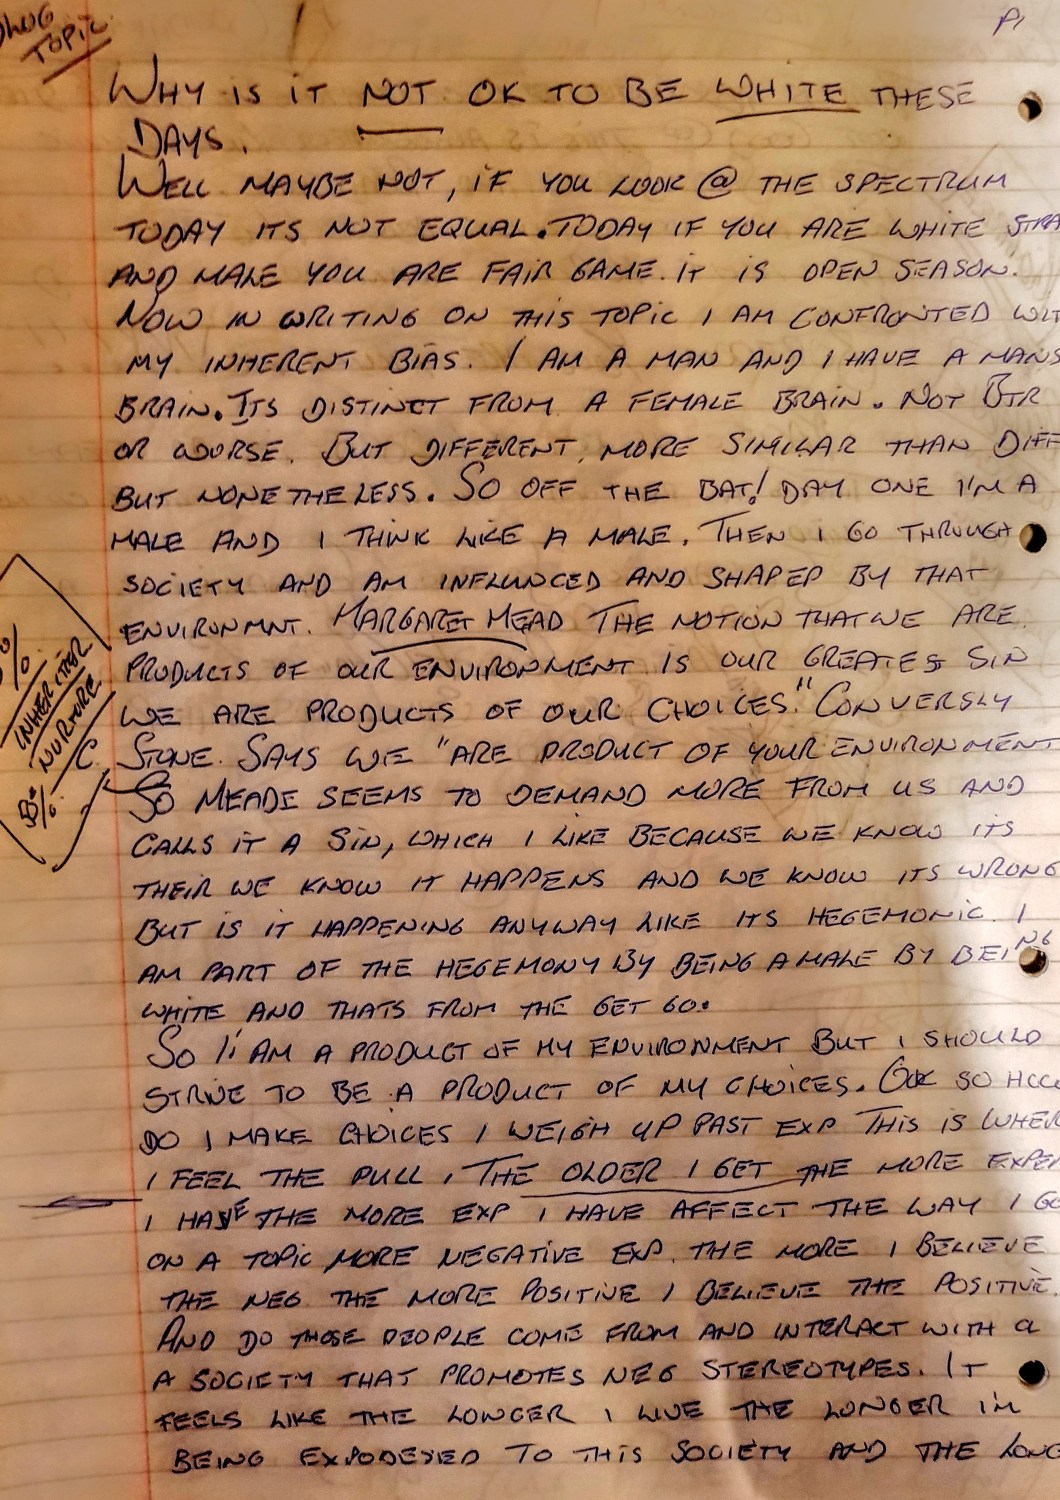 TOPIC
P1
WHY IS IT NOT OK TO BE WHITE THESE
DAYS.
WELL MAYBE NOT, IF YOU LOOK @ THE SPECTRUM
TODAY ITS NOT EQUAL. TODAY IF YOU ARE WHITE STRA
AND MALE YOU ARE FAIR GAME. IT IS OPEN SEASON.
NOW IN WRITING ON THIS TOPIC I AM CONFRONTED WIT
MY INHERENT BIAS. I AM A MAN AND I HAVE A MANS
BRAIN. ITS DISTINCT FROM A FEMALE BRAIN. NOT BTR
OR WORSE. BUT DIFFERENT, MORE SIMILAR THAN DIFF
BUT NONETHELESS. SO OFF THE BAT! DAY ONE I'M A
MALE AND I THINK LIKE A MALE. THEN I GO THROUGH
SOCIETY AND AM INFLUNCED AND SHAPED BY THAT
ENVIRONMNT. MARGARET MEAD THE NOTION THAT WE ARE
PRODUCTS OF OUR ENVIRONMENT IS OUR GREATEST SIN
WE ARE PRODUCTS OF OUR CHOICES." CONVERSLY
STONE. SAYS WE "ARE PRODUCT OF YOUR ENVIRONMENT
SO MEADE SEEMS TO DEMAND MORE FROM US AND
CALLS IT A SIN, WHICH I LIKE BECAUSE WE KNOW ITS
THEIR WE KNOW IT HAPPENS AND WE KNOW ITS WRONG
BUT IS IT HAPPENING ANYWAY LIKE ITS HEGEMONIC. I
AM PART OF THE HEGEMONY BY BEING A MALE BY BEING
WHITE AND THATS FROM THE GET GO.
SO I AM A PRODUCT OF MY ENVIRONMENT BUT I SHOULD
STRIVE TO BE A PRODUCT OF MY CHOICES. SO HOW
DO I MAKE CHOICES I WEIGH UP PAST EXP THIS IS WHER
I FEEL THE PULL, THE OLDER I GET THE MORE EXPER
I HAVE THE MORE EXP I HAVE AFFECT THE WAY I GO
ON A TOPIC MORE NEGATIVE EXP. THE MORE I BELIEVE
THE NEG THE MORE POSITIVE I BELIEVE THE POSITIVE.
AND DO THOSE PEOPLE COME FROM AND INTERACT WITH a
A SOCIETY THAT PROMOTES NEG STEREOTYPES. IT
FEELS LIKE THE LONGER I LIVE THE LONGER IM
BEING EXPODESED TO THIS SOCIETY AND THE LONG
NURTURE